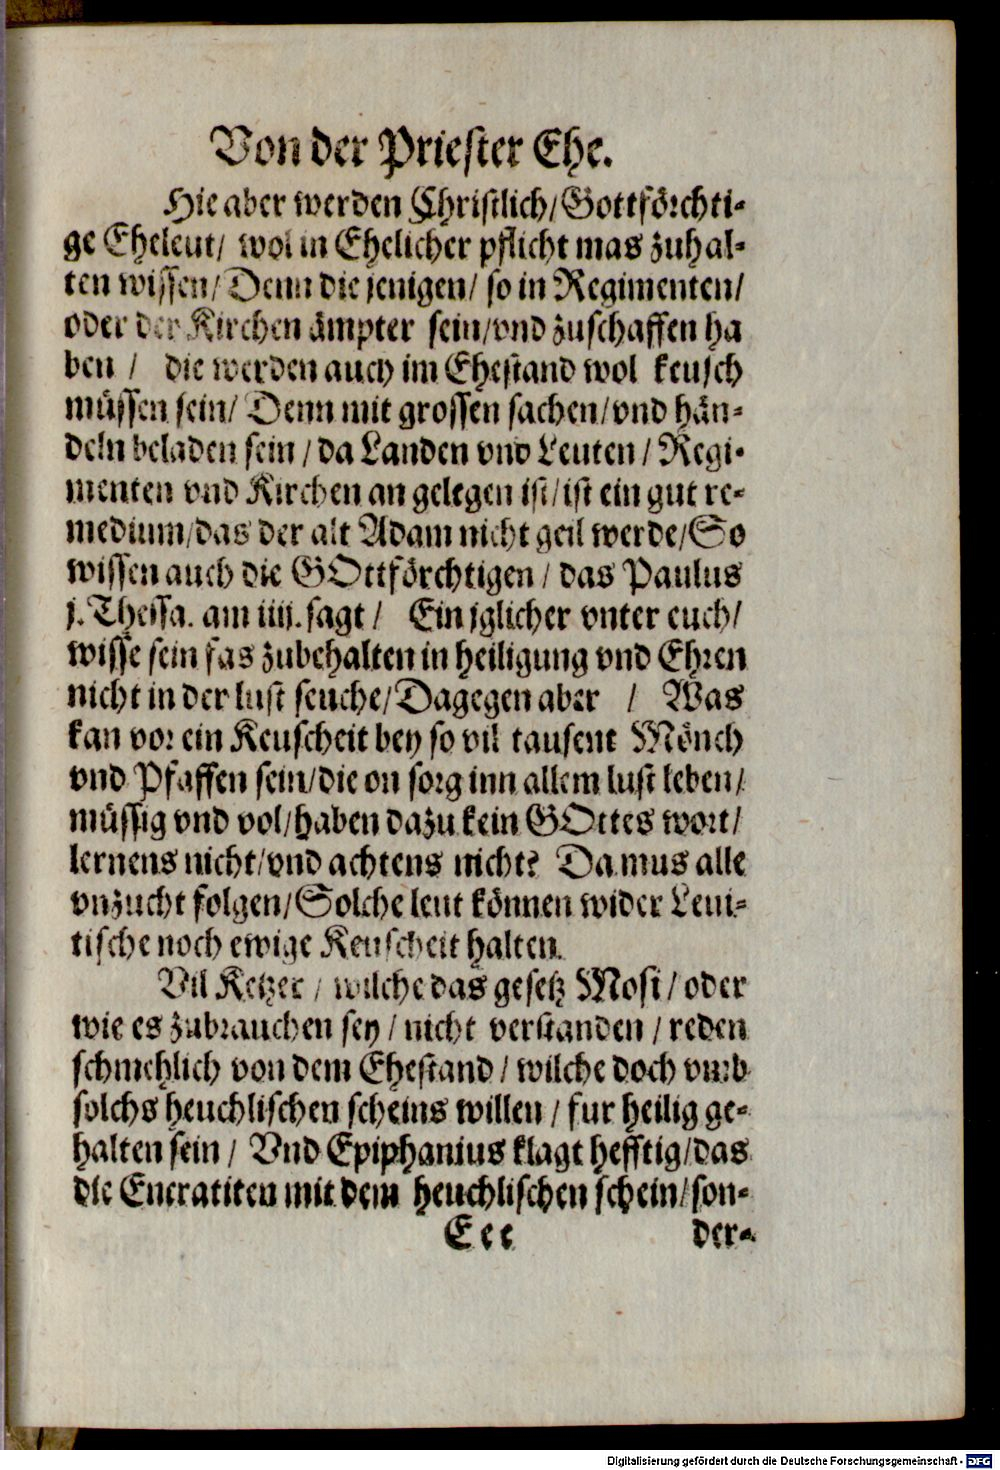 Von der Priester Ehe.
Hie aber werden Christlich/Gottförchti-
ge Eheleut/ wol in Ehelicher pflicht mas zuhal-
ten wissen/Denn die jenigen/ so in Regimenten/
oder der Kirchen ämpter sein/vnd zuschaffen ha
ben / die werden auch im Ehestand wol keusch
müssen sein/ Denn mit grossen sachen/vnd hän-
deln beladen sein / da Landen vnd Leuten / Regi-
menten vnd Kirchen an gelegen ist/ist ein gut re-
medium/das der alt Adam nicht geil werde/So
wissen auch die GOttförchtigen / das Paulus
j. Thessa. am iiij. sagt / Ein jglicher vnter euch/
wisse sein fas zubehalten in heiligung vnd Ehren
nicht in der lust seuche/Dagegen aber / Was
kan vor ein Keuscheit bey so vil tausent Mönch
vnd Pfaffen sein/die on sorg inn allem lust leben/
müssig vnd vol/haben dazu kein GOttes wort/
lernens nicht/vnd achtens nicht? Da mus alle
vnzucht folgen/Solche leut können wider Leui-
tische noch ewige Keuscheit halten.
Vil Ketzer / wilche das gesetz Mosi / oder
wie es zubrauchen sey / nicht verstanden / reden
schmehlich von dem Ehestand / wilche doch vmb
solchs heuchlischen scheins willen / fur heilig ge-
halten sein / Vnd Epiphanius klagt hefftig/das
die Encratiten mit dem heuchlischen schein/son-
Eee der-
Digitalisierung gefördert durch die Deutsche Forschungsgemeinschaft - DFG